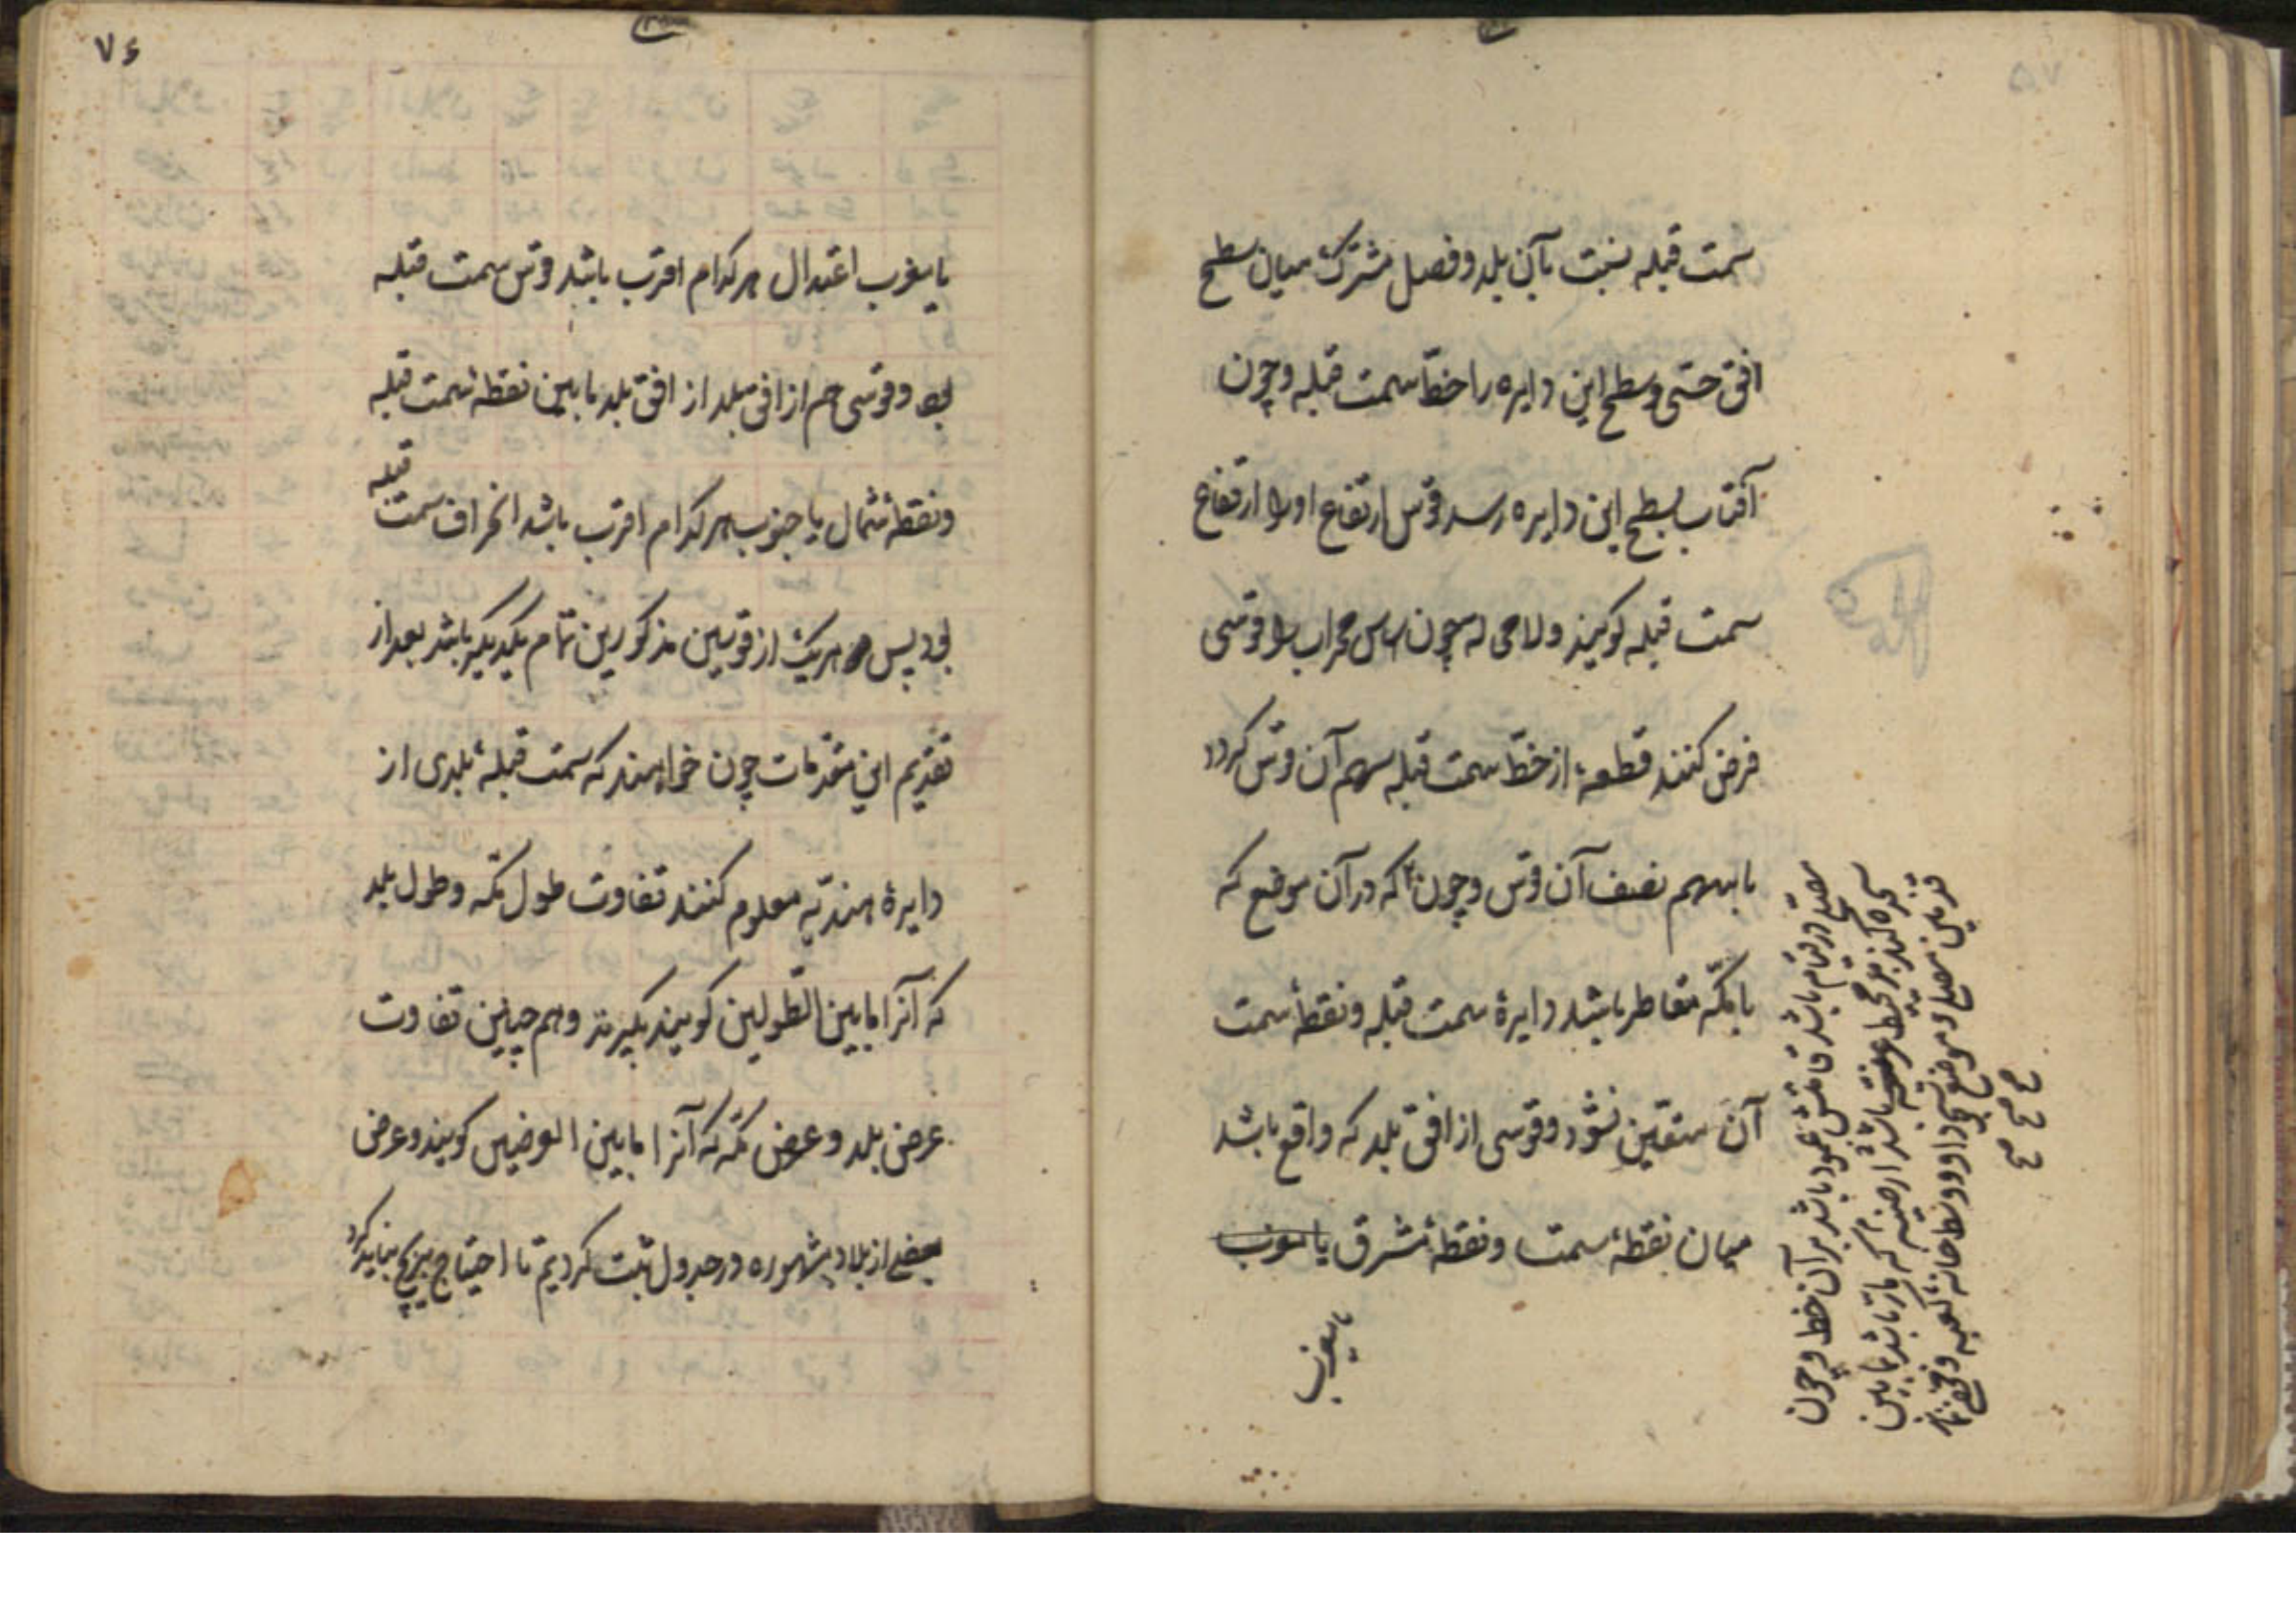 سمت قبله نسبت بآن بلد و فصل مشترک میان سطح
افق حسّی و سطح این دایره را خطّ سمت قبله و چون
آفتاب بسطح این دایره رسد قوس ارتفاع او را ارتفاع
سمت قبله کویند و لامحی له چون اساس محراب را قوسی
فرض کنند قطعهٔ از خطّ سمت قبله سهم آن قوس کردد
با سهم نصف آن قوس و چون که در آن موضع که
با مکّه متقاطر باشد دایرهٔ سمت قبله و نقطهٔ سمت
آن متعّین نشود و قوسی از افق بلد که واقع باشد
میان نقطهٔ سمت و نقطهٔ مشرق یا مغرب
یا مغرب
در مقام باشد قامتش عمود باشد بر آن خط و چون
سجده کند بر محیط باشد ارضیه که مارّ باشد بمابین
قدمین مصلّی و موضع سجود او و وسط خانهٔ کعبه
۷۶
یا مغرب اعتدال هر کدام اقرب باشد قوس سمت قبله
بود و قوسی هم از افق بلد از افق بلد مابین نقطهٔ سمت قبله
و نقطهٔ شمال یا جنوب هر کدام اقرب باشد انحراف سمت قبله
بود پس هر یک از قوسین مذکورین تمام یکدیکر باشد بعد از
تقدیم این مقدّمات چون خواهند که سمت قبلهٔ بلدی از
دایرهٔ هندیّه معلوم کنند تفاوت طول مکّه و طول بلد
که آنرا مابین الطّولین کویند بکیرند و همچنین تفاوت
عرض بلد و عرض مکّه که آنرا مابین العرضین کویند و عرض
بعضی از بلاد مشهوره در جدول ثبت کردیم تا احتیاج بزیج نباید کرد